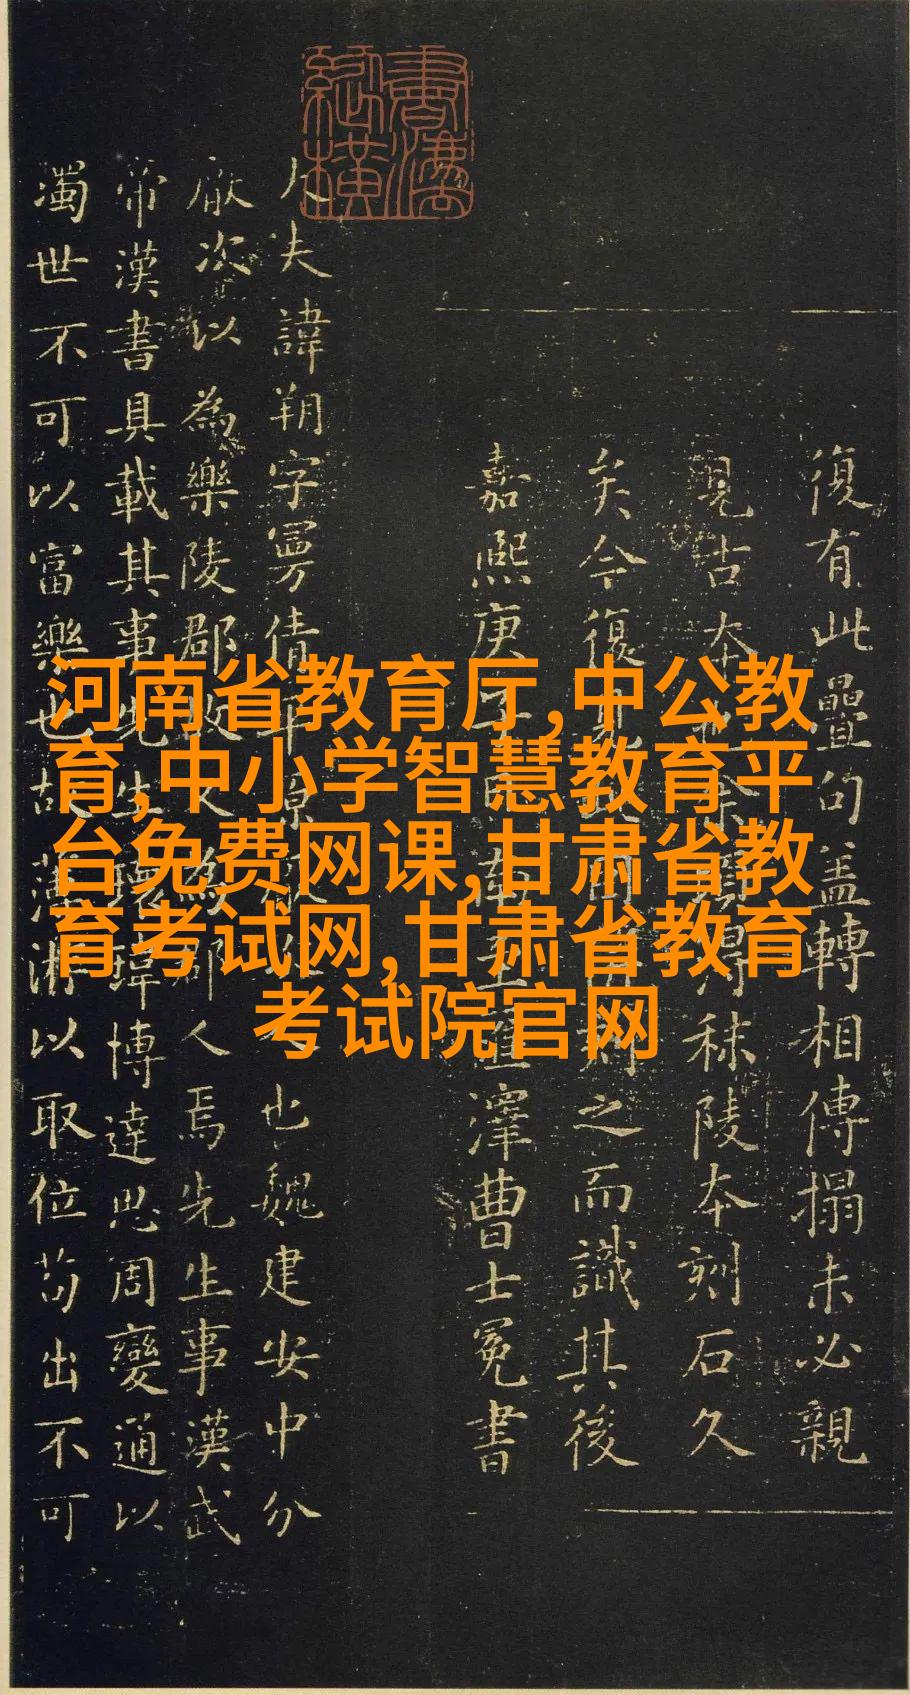 河南省教育厅,中公教
育,中小学智慧教育平
台免费网课,甘肃省教
育考试网,甘肃省教育
考试院官网
復有此疊句盖轉相傳搨未必親
見古本得秣陵本刻石久
矣今復見之而識其後
嘉熙庚子澤曹士冕書
大夫諱朔字曼倩平原也魏建安中分
厥次以為樂陵郡故又為郡人焉先生事漢武
帝漢書具載其事先生瑋博達思周變通以
濁世不可以富樂也故薄游以取位苟出不可